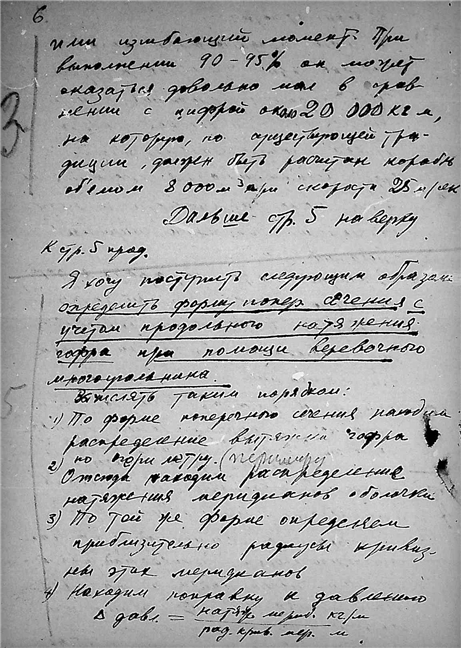 6.
или изгибающий момент. При
выполнении 90-95% он может
оказаться довольно мал в срав-
нении с цифрой около 20 000 кг м,
на которую, по существующей тра-
диции, должен быть расчитан корабль
об'емом 8000 м³ при скорости 25 м/сек
3
Дальше стр. 5 на верху
К стр. 5 прод.
Я хочу поступить следующим образом:
определить форму попер сечения с
учетом продольного натяжения
гофра при помощи веревочного
многоугольника
таким порядком:
5
1) По форме поперечного сечения находим
распределение вытяжки гофра
по периметру. (периметру)
2) Отсюда находим распределение
натяжения меридианов оболочки
3) По той же форме определяем
приблизительно радиусы кривиз-
ны этих меридианов
4) Находим поправку к давлению
Δ давл. = натяж. мерид. кг/м
рад. крив. мер. м